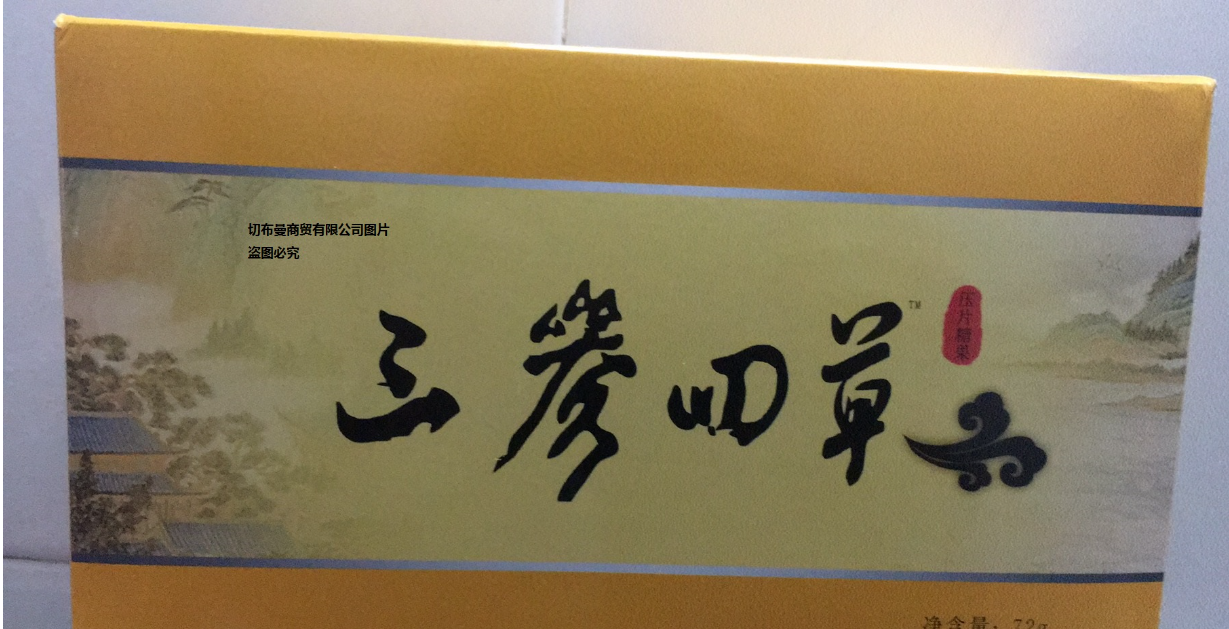 切布曼商贸有限公司图片
盗图必究
三参四草
TM
压片糖果
净含量：72g